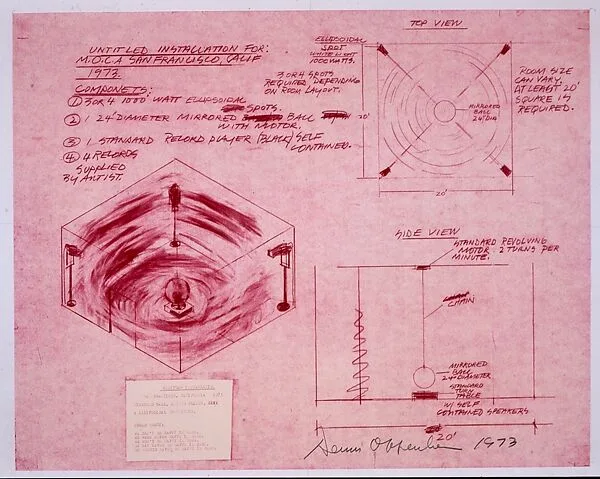 UNTITLED INSTALLATION FOR:
M.O.C.A SAN FRANCISCO, CALIF
1973
COMPONETS:
① 3 OR 4 1000 WATT ELLIPSOIDAL SPOTS.
② 1 24" DIAMETER MIRRORED BALL
WITH MOTOR.
③ 1 STANDARD RECORD PLAYER (BLACK) SELF
CONTAINED.
④ 4 RECORDS
SUPPLIED
BY ARTIST.
ELLIPSOIDAL
SPOT
WHITE LIGHT
1000 WATTS.
3 OR 4 SPOTS
REQUIRED DEPENDING
ON ROOM LAYOUT.
TOP VIEW
20'
MIRRORED
BALL
24" DIA
20'
ROOM SIZE
CAN VARY.
AT LEAST 20'
SQUARE IS
REQUIRED.
SIDE VIEW
STANDARD REVOLVING
MOTOR - 2 TURNS PER
MINUTE.
CHAIN
MIRRORED
BALL
24" DIAMETER
STANDARD
TURN
TABLE
W/ SELF
CONTAINED SPEAKERS
20'
Dennis Oppenheim 1973